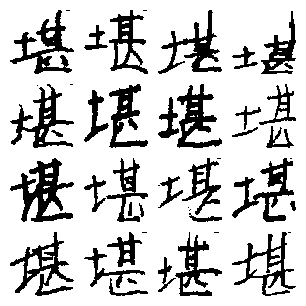 堪堪堪堪
堪堪堪堪
堪堪堪堪
堪堪堪堪